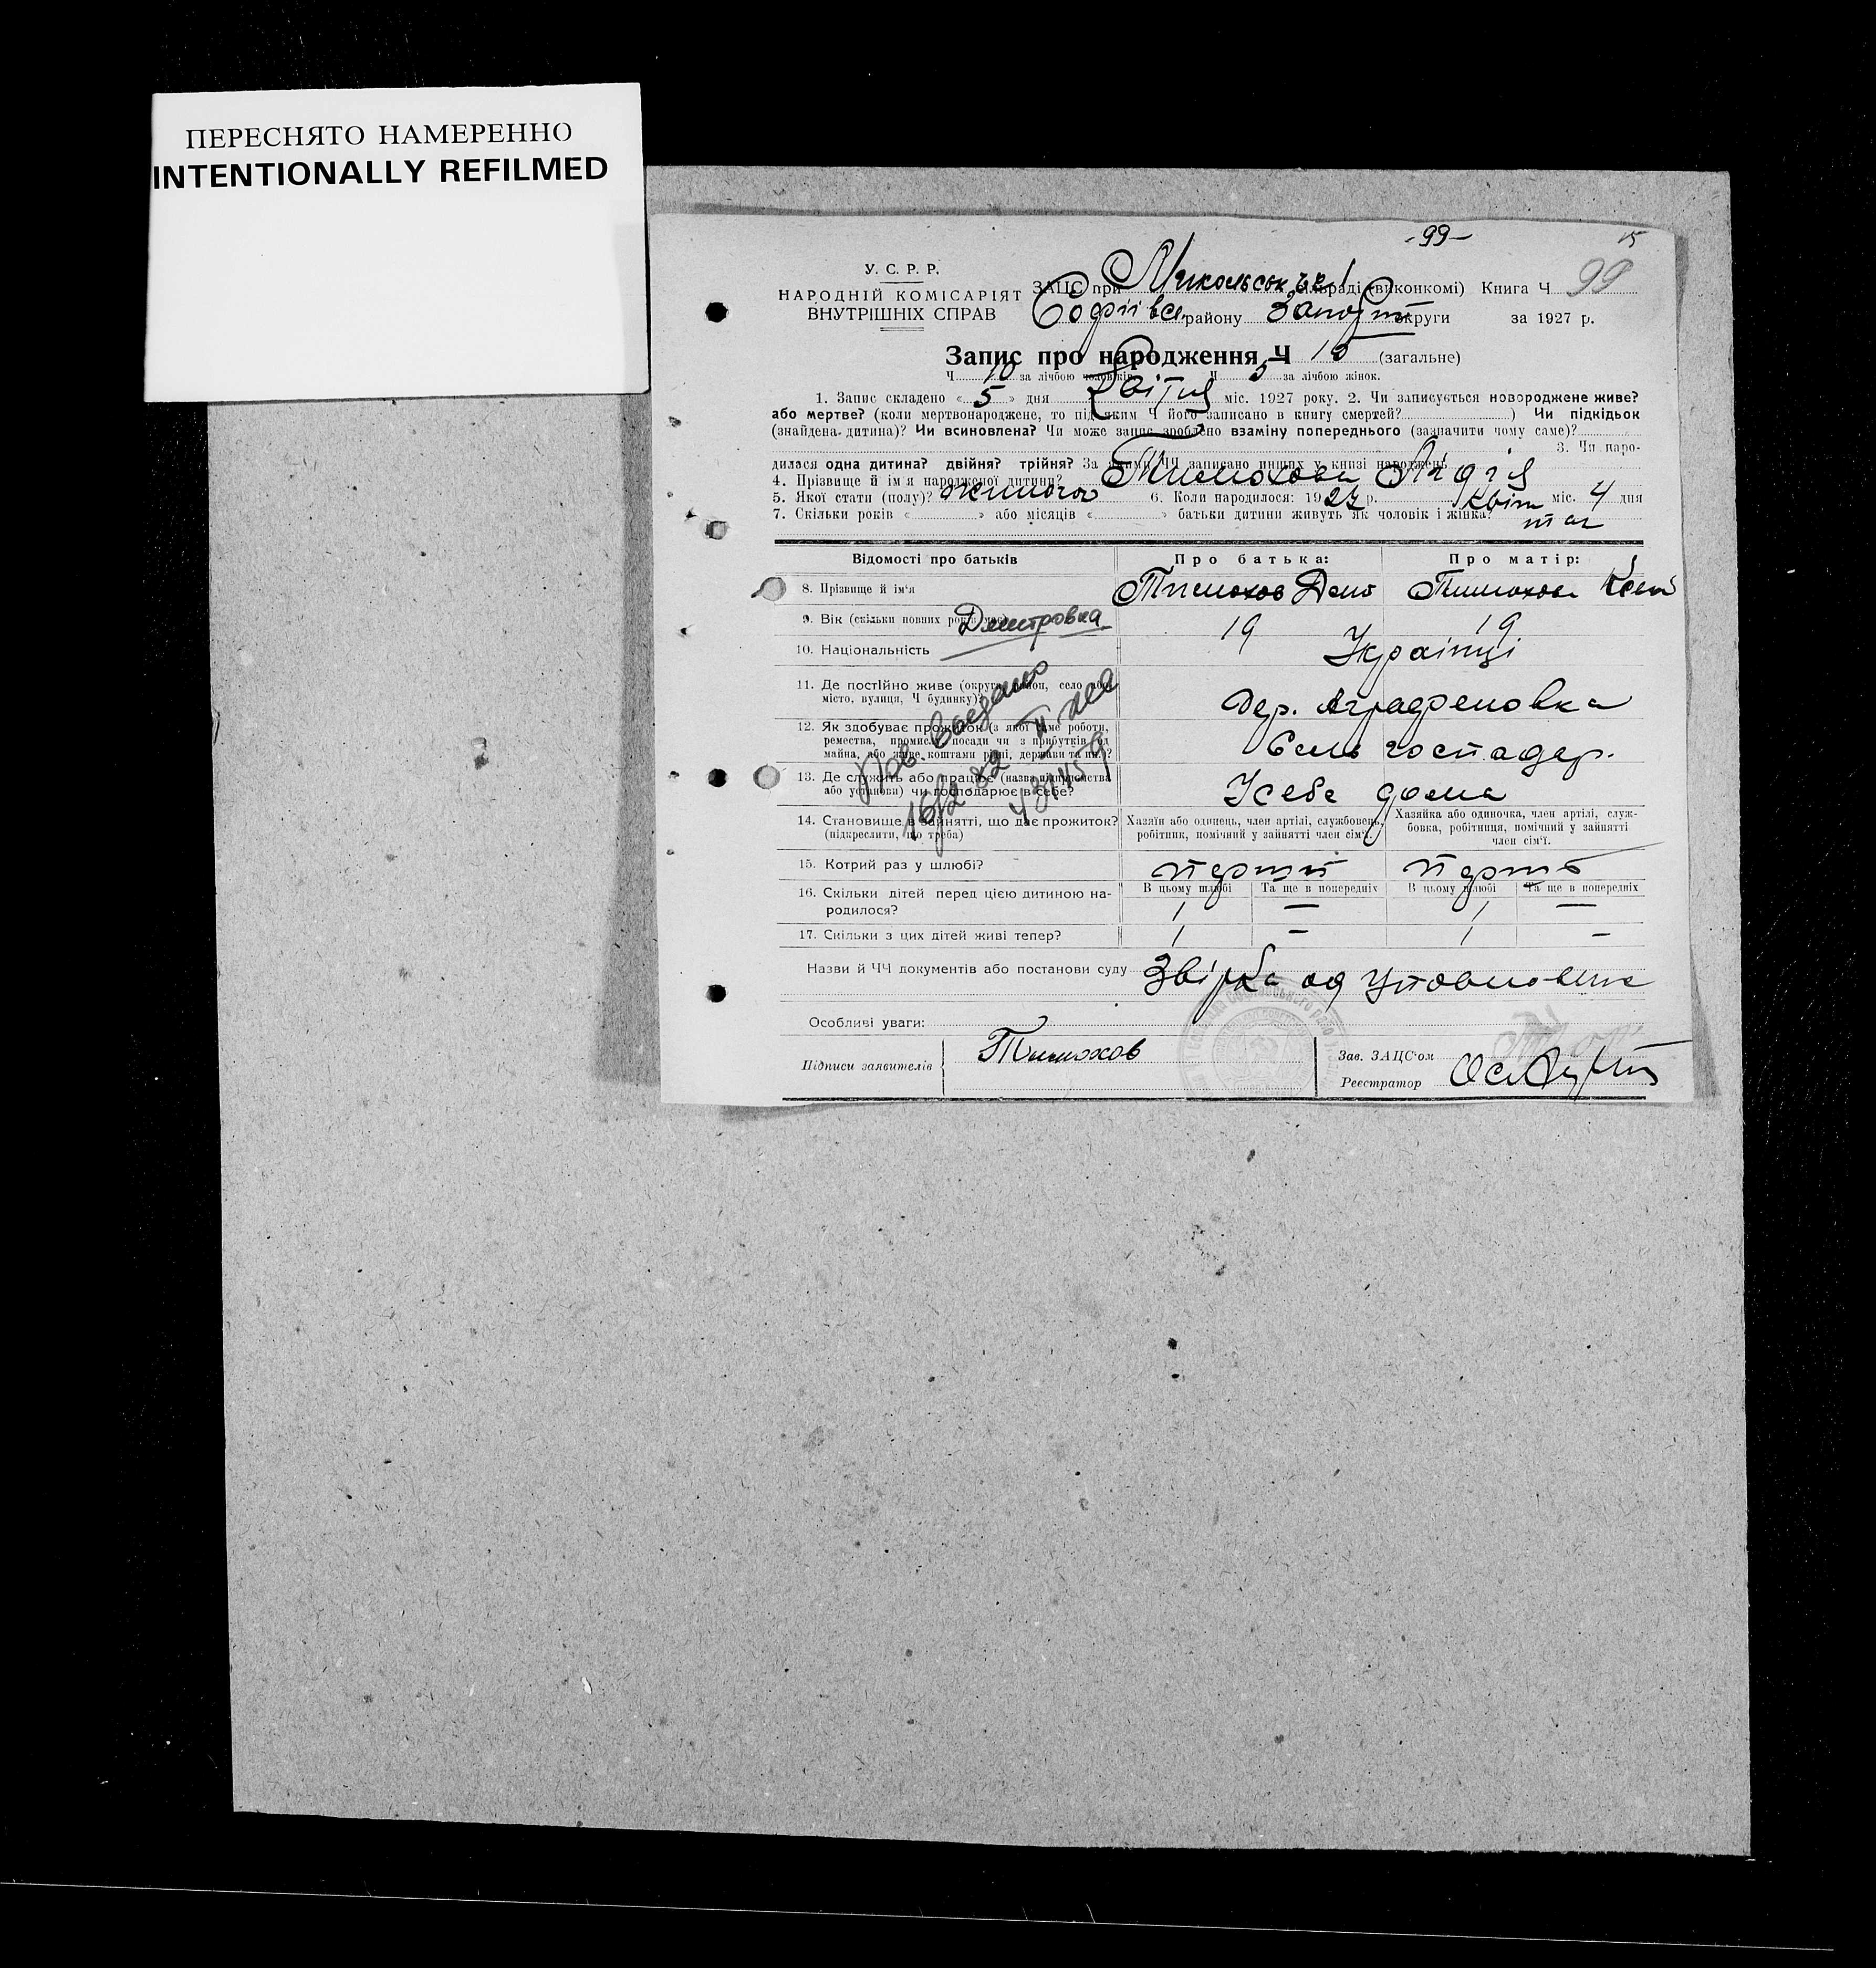 ПЕРЕСНЯТО НАМЕРЕННО
INTENTIONALLY REFILMED
-99-
15
У. С. Р. Р.
НАРОДНІЙ КОМІСАРІЯТ
ВНУТРІШНІХ СПРАВ
ЗАЦС при Микольськ (виконкомі) Книга Ч 99
Софіївск району Запорт округи за 1927 р.
Запис про народження Ч 15 (загальне)
Ч 10 за лічбою чоловіків Ч 5 за лічбою жінок.
1. Запис складено « 5 » дня Квітня міс. 1927 року. 2. Чи записується новороджене живе?
або мертве? (коли мертвонароджене, то під яким Ч його записано в книгу смертей? ) Чи підкідьок
(знайдена дитина)? Чи всиновлена? Чи може запис зроблено взаміну попереднього (зазначити чому саме)?
3. Чи наро-
дилася одна дитина? двійня? трійня? За якими ЧЧ записано инших у книзі народжень
4. Прізвище й ім'я народженої дитини? Тимохова Лідія
5. Якої стати (полу)? жиночо 6. Коли народилося: 1927 р. Квіт міс. 4 дня
7. Скільки років « » або місяців « » батьки дитини живуть як чоловік і жінка?
Відомості про батьків Про батька: Про матір:
8. Прізвище й ім'я Тимохов Тимохова
9. Вік (скільки повних років має) 19 19
Дмитровка
10. Національність Українці
11. Де постійно живе (округа, район, село або
місто, вулиця, Ч будинку)? Дер. Аграфеновка
12. Як здобуває прожиток (з якої саме роботи,
ремества, промислу, посади чи з прибутків од
майна, або живе коштами рідні, держави та ин.)? Сель господар.
13. Де служить або працює (назва підприємства
або установи) чи господарює в себе? Усебе дома
Пов. выдано
14. Становище в зайнятті, що дає прожиток?
(підкреслити, що треба)
Хазяїн або одинець, член артілі, службовець,
робітник, помічний у зайнятті член сім'ї.
Хазяйка або одиночка, член артілі, служ-
бовка, робітниця, помічний у зайнятті
член сім'ї.
15. Котрий раз у шлюбі? перший
16. Скільки дітей перед цією дитиною на-
родилося?
В цьому шлюбі Та ще в попередніх В цьому шлюбі Та ще в попередніх
1 — 1 —
17. Скільки з цих дітей живі тепер? 1 — 1 —
Назви й ЧЧ документів або постанови суду Звірка од
Особливі уваги:
Підписи заявителів Тимохов
Зав. ЗАЦС'ом
Реєстратор